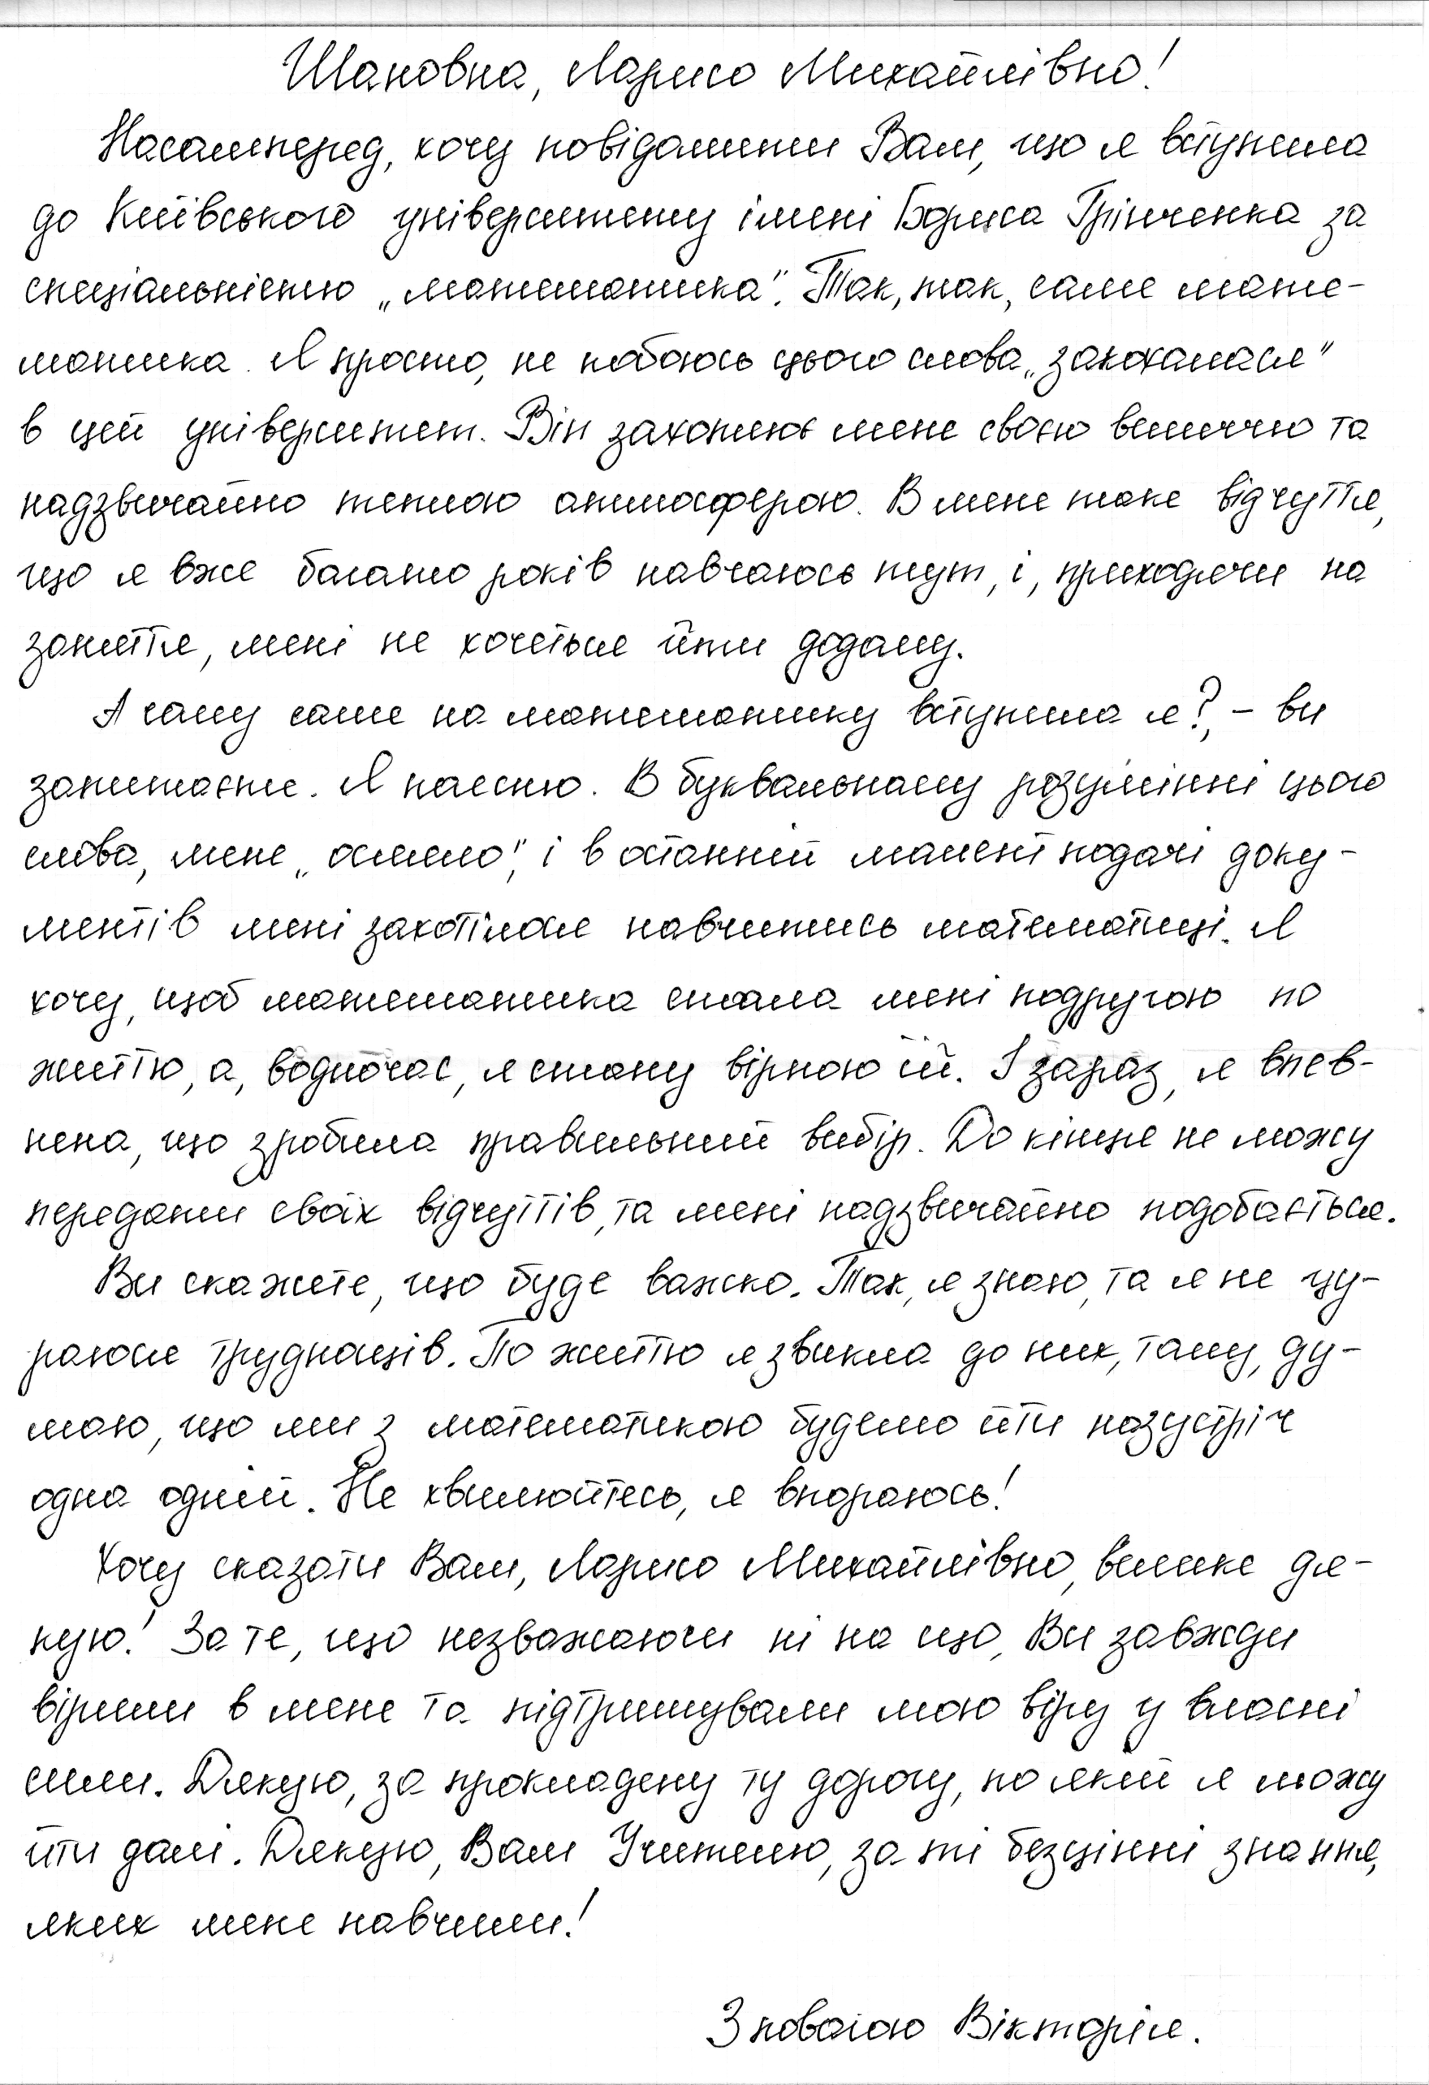 Шановна, Ларисо Михайлівно!
Насамперед, хочу повідомити Вам, що я вступила
до Київського університету імені Бориса Грінченка за
спеціальністю „математика". Так, так, саме мате-
матика. Я просто, не побоюсь цього слова „закохалася"
в цей університет. Він захоплює мене своєю величчю та
надзвичайно теплою атмосферою. В мене таке відчуття,
що я вже багато років навчаюсь тут, і, приходячи на
заняття, мені не хочеться йти додому.
А чому саме на математику вступила я?, – ви
запитаєте. Я поясню. В буквальному розумінні цього
слова, мене „осяяло", і в останній момент подачі доку-
ментів мені захотілося навчитись математиці. Я
хочу, щоб математика стала мені подругою по
життю, а, водночас, я стану вірною їй. І зараз, я впев-
нена, що зробила правильний вибір. До кінця не можу
передати своїх відчуттів, та мені надзвичайно подобається.
Ви скажете, що буде важко. Так, я знаю, та я не цу-
раюся труднощів. По життю я звикла до них, тому, ду-
маю, що ми з математикою будемо йти назустріч
одна одній. Не хвилюйтесь, я впораюсь!
Хочу сказати Вам, Ларисо Михайлівно, велике дя-
кую! За те, що незважаючи ні на що, Ви завжди
вірили в мене та підтримували мою віру у власні
сили. Дякую, за прокладену ту дорогу, по якій я можу
йти далі. Дякую, Вам Учителю, за ті безцінні знання,
яких мене навчили!
З повагою Вікторія.